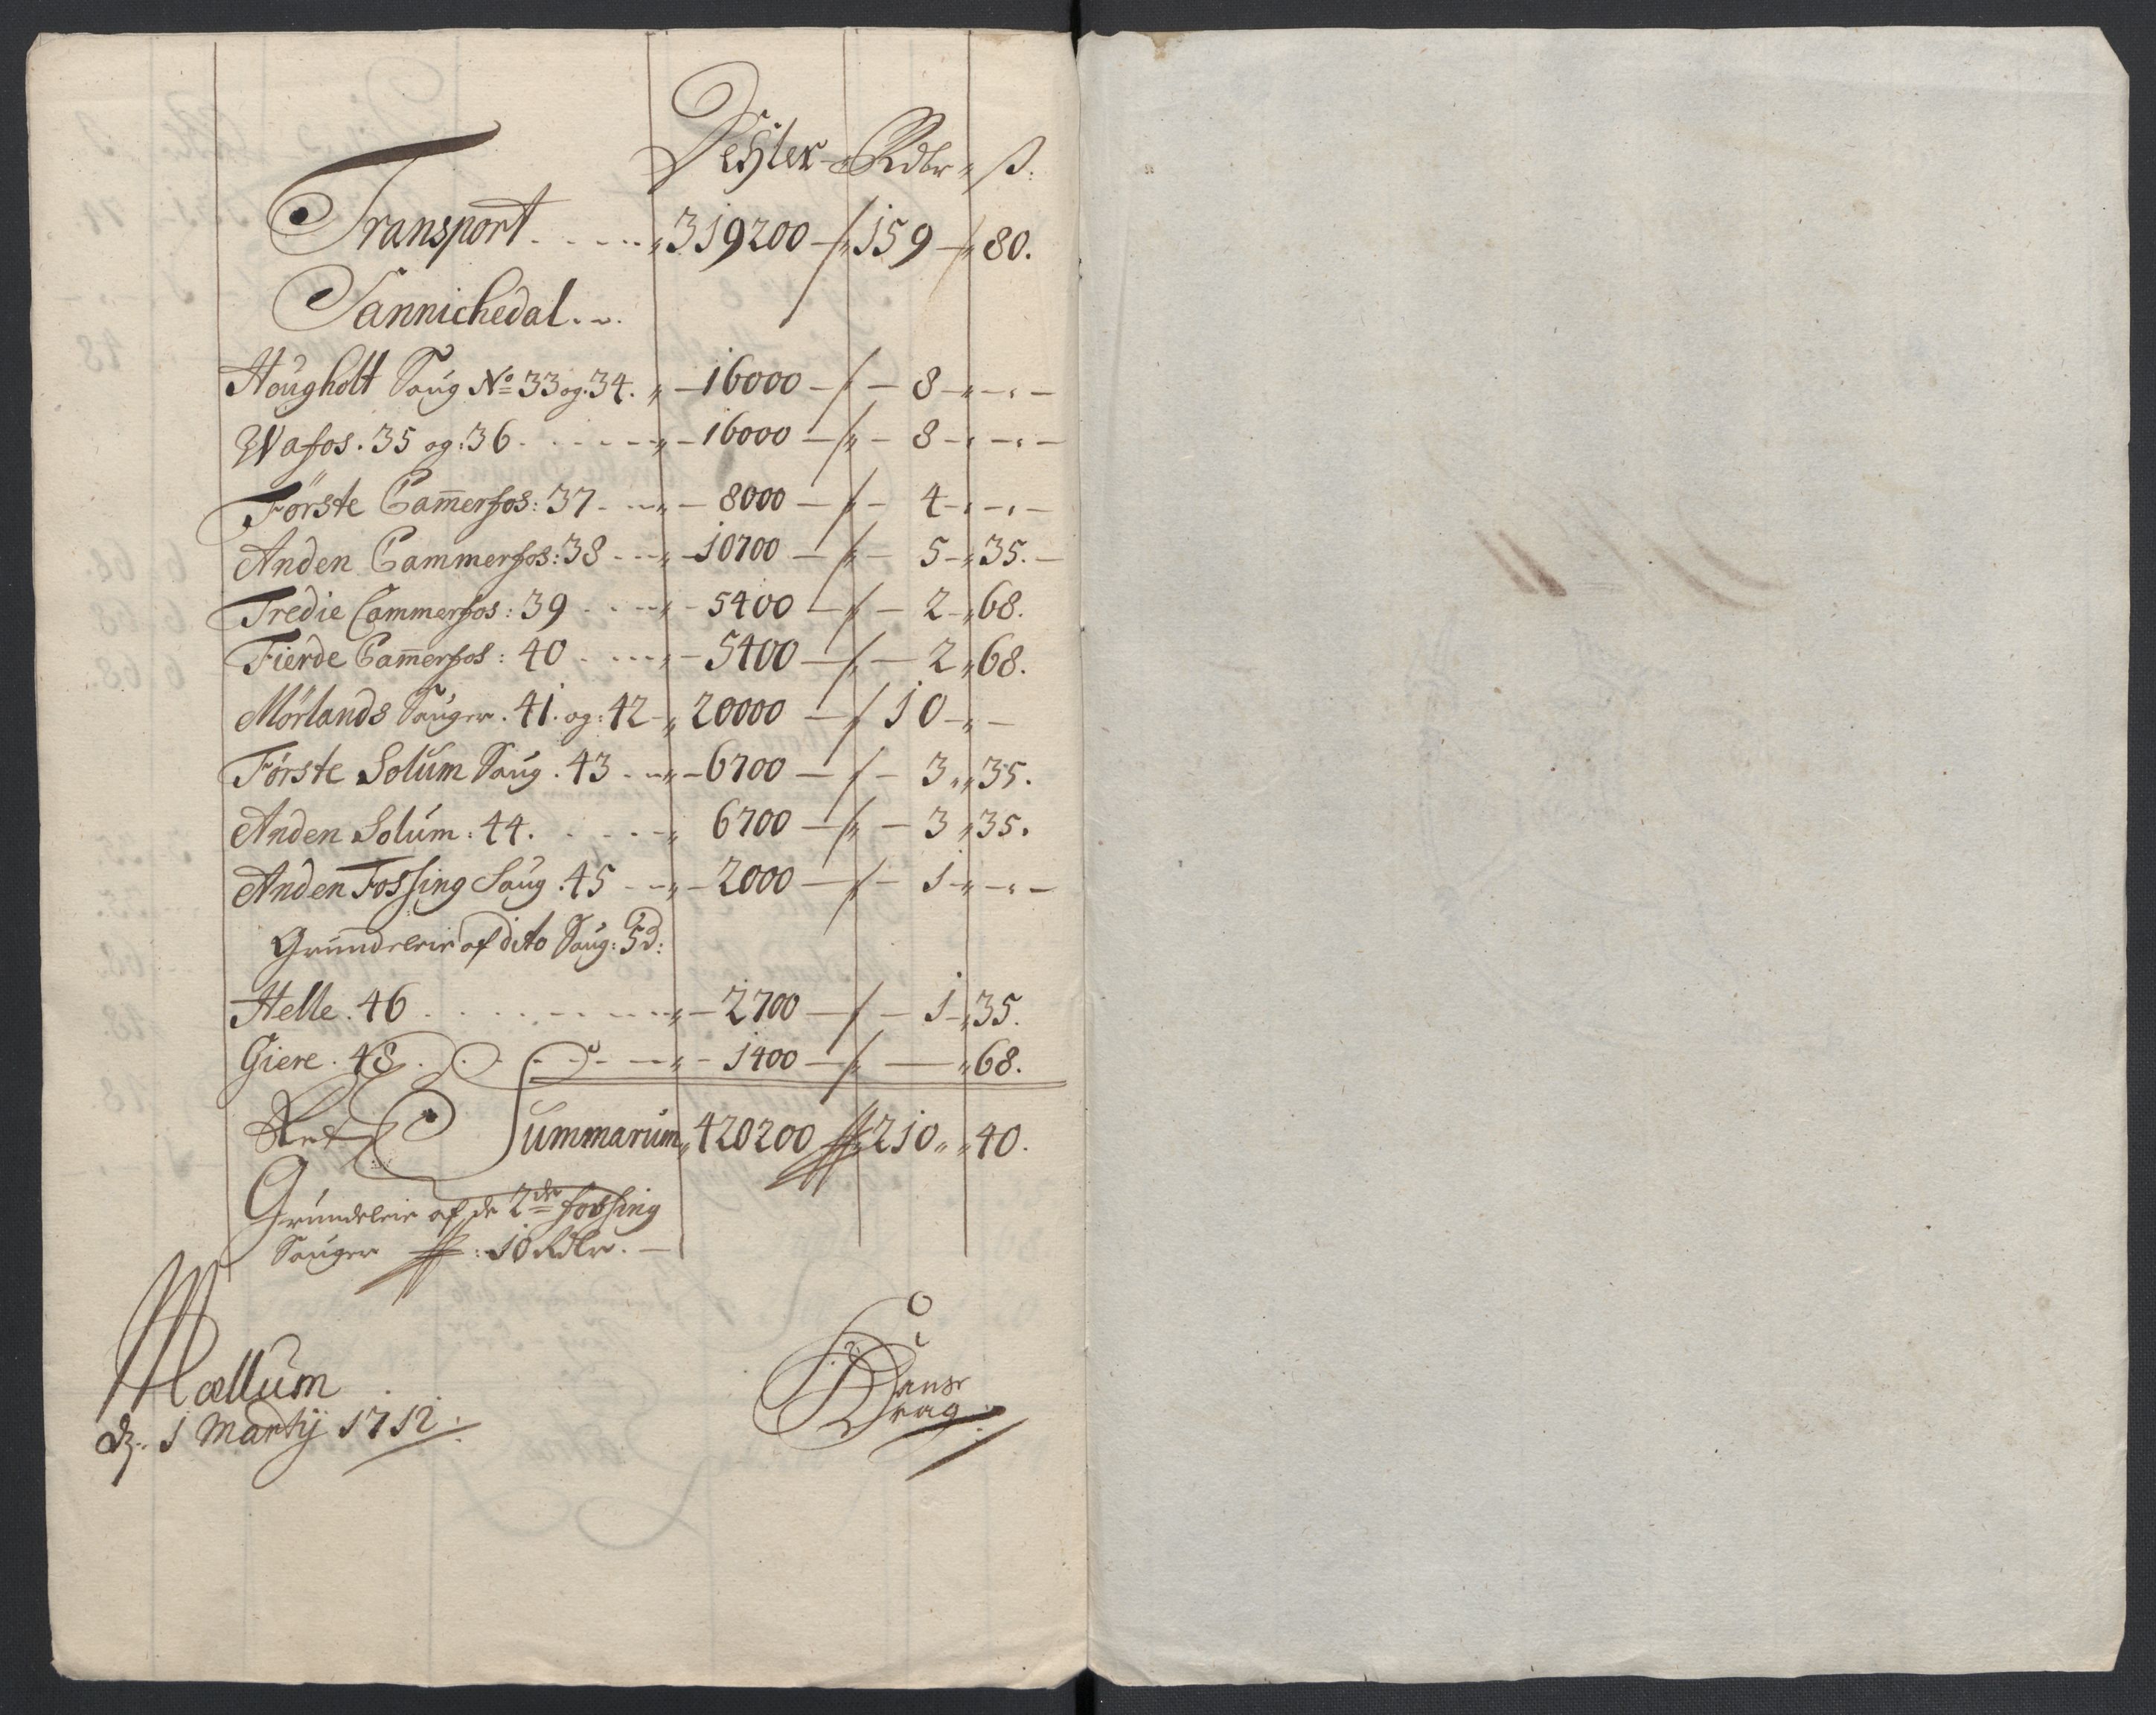 Dehler - Rdlr „ ß:
Transport . . . . . „ 319200 - „ 159 - „ 80.
Sannichedal . ~ .
Hougholt Saug No 33 og: 34. „ - 16000 - - 8 - „ - „ -
Wafos. 35 og: 36 . . . . - „ - 16000 - „ - 8 - „ - „ -
Förste Cam̄erfos: 37 - - - „ - 8000 - „ - 4 - „ - „ -
Anden Cammerfos: 38 - - - „ - 10700 - „ - 5 - „ 35. -
Tredie Cammerfos: 39 . . . - „ - 5400 - „ - 2 - „ 68.
Fierde Cam̄erfos: 40 . . . - „ - 5400 - „ - 2 „ 68.
Mörlands Sauger. 41. og: 42 - „ 20000 - „ 10 - „ -
Förste Solum Saug. 43 - - „ - 6700 - - 3 „ „ 35.
Anden Solum: 44. . . . . - „ 6700 - „ - 3 „ 35.
Anden Fossing Saug. 45 - - „ - 2000 - - 1 - „ - „ -
Grundeleie af dito Saug: 5 d:
Helle. 46 . . . . . . - - - „ - 2700 - - 1 - „ 35.
Giere. 48 . . . - - - „ - 1400 - „ - „ 68.
Summarum „ 420200 „ 210 „ „ 40.
Grundeleie af de 2de fossing
Sauger : 10 Rdlr. -
Mællum
d. 1 Martij 1712:
Hans
Krag: